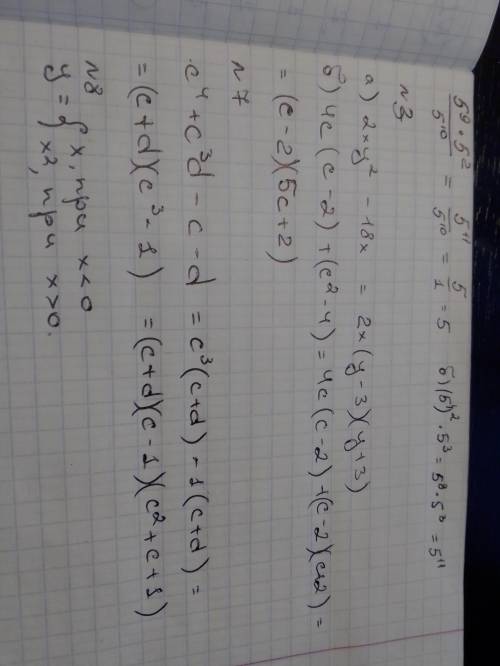 5⁹·5²/5¹⁰ = 5¹¹/5¹⁰ = 5/1 = 5 б) (5⁴)²·5³ = 5⁸·5³ = 5¹¹
n3
а) 2xy² - 18x = 2x(y-3)(y+3)
б) 4c(c-2)+(c²-4) = 4c(c-2)+(c-2)(c+2) =
= (c-2)(5c+2)
n7
c⁴+c³d-c-d = c³(c+d)-1(c+d) =
= (c+d)(c³-1) = (c+d)(c-1)(c²+c+1)
n8
y = { x, при x<0
x², при x>0.